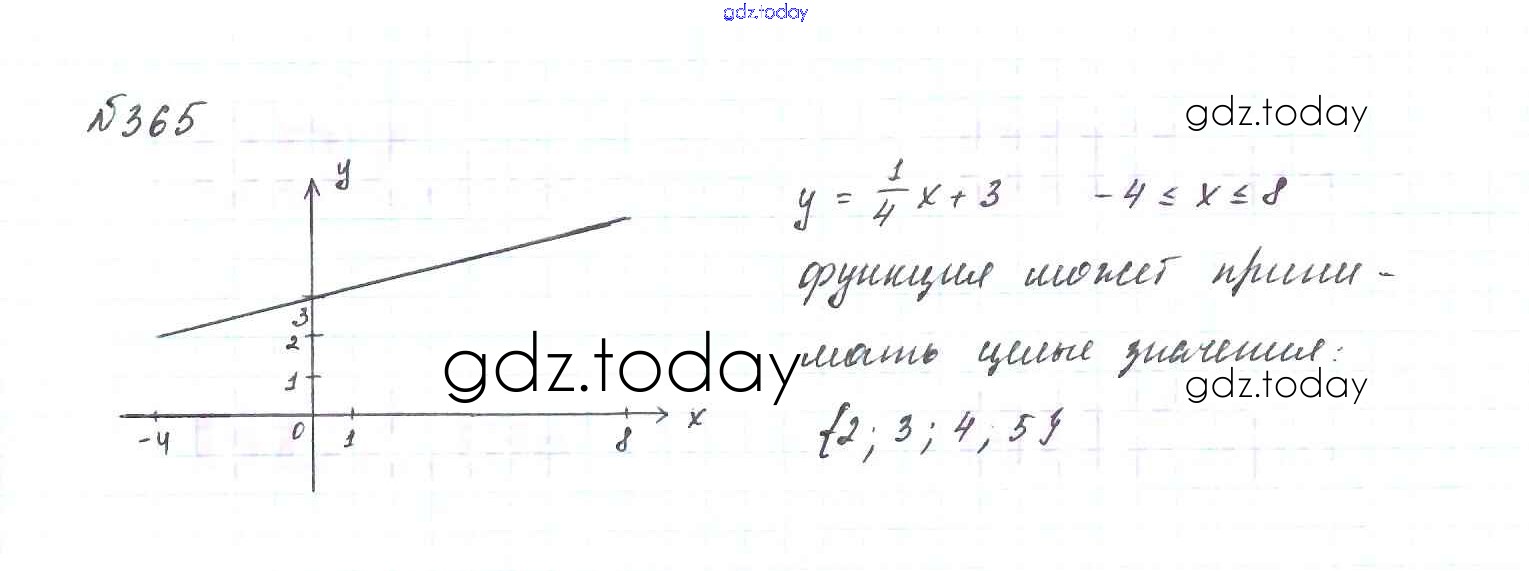 gdz.today
№365
gdz.today
y
y = 1/4 x + 3 -4 ≤ x ≤ 8
функция может прини-
3
2
мать целые значения:
gdz.today
1
gdz.today
x
-4 0 1 8
{2; 3; 4; 5}